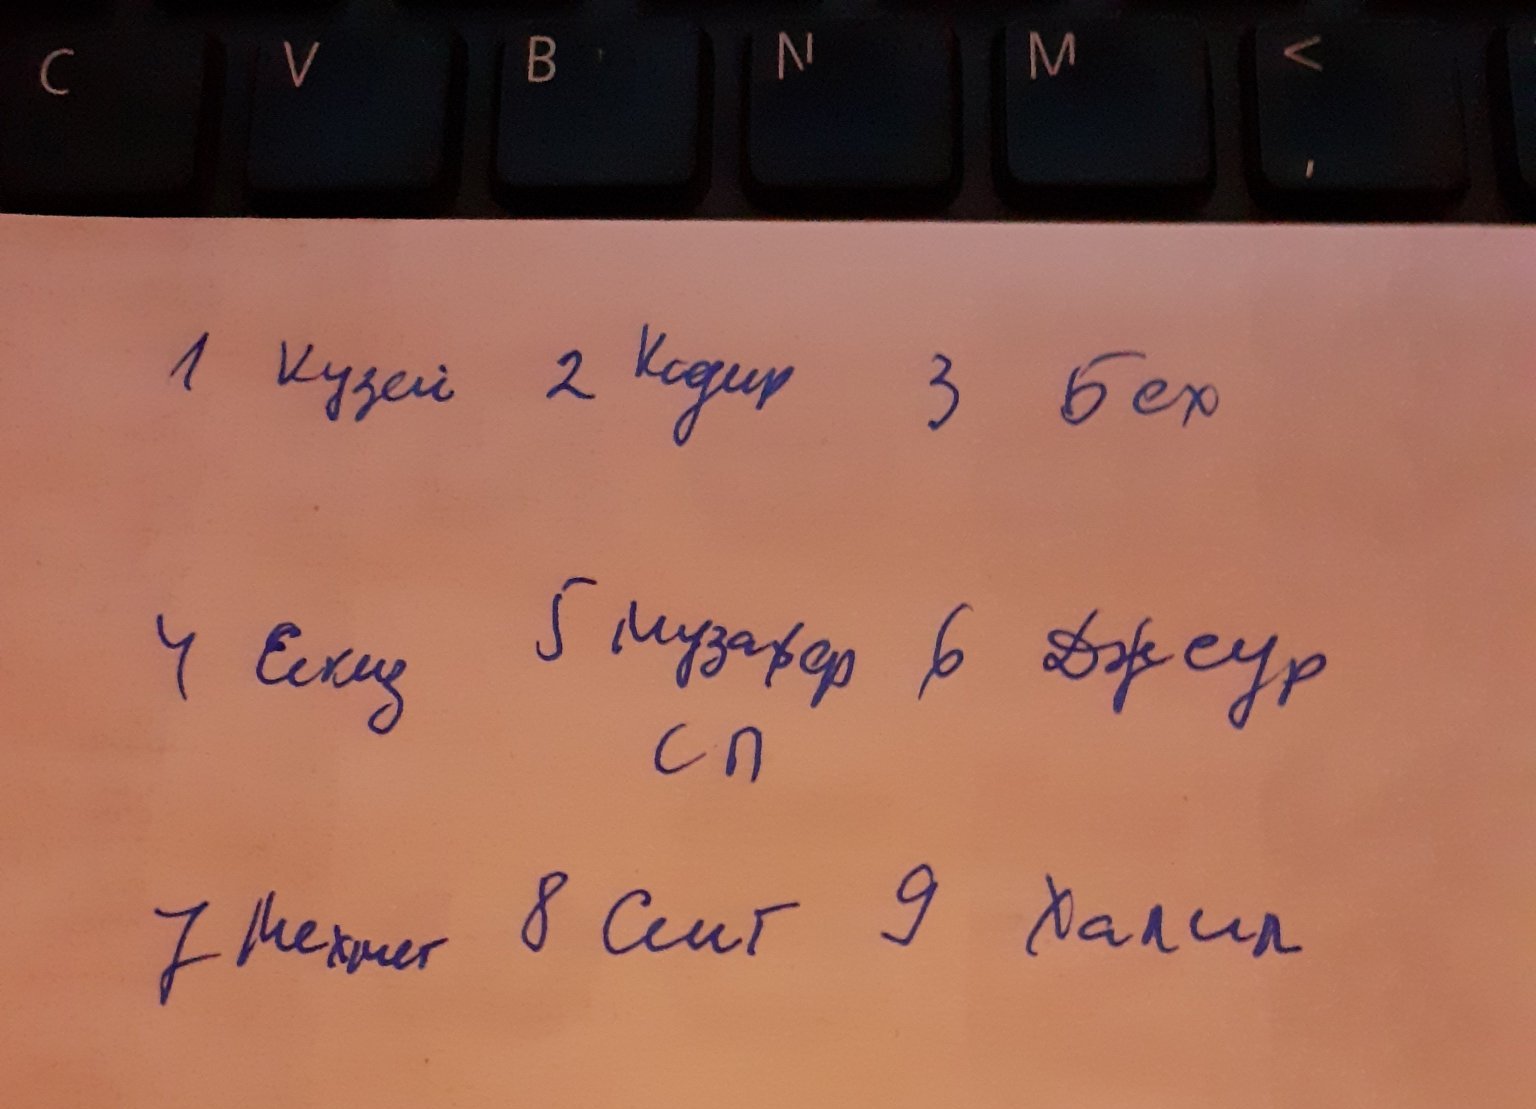 C V B N M <
,
1 Кузей 2 Кадир 3 Бех
4 Екиз 5 Музафер 6 Джеур
СП
7 Мехмет 8 Сеит 9 Халил